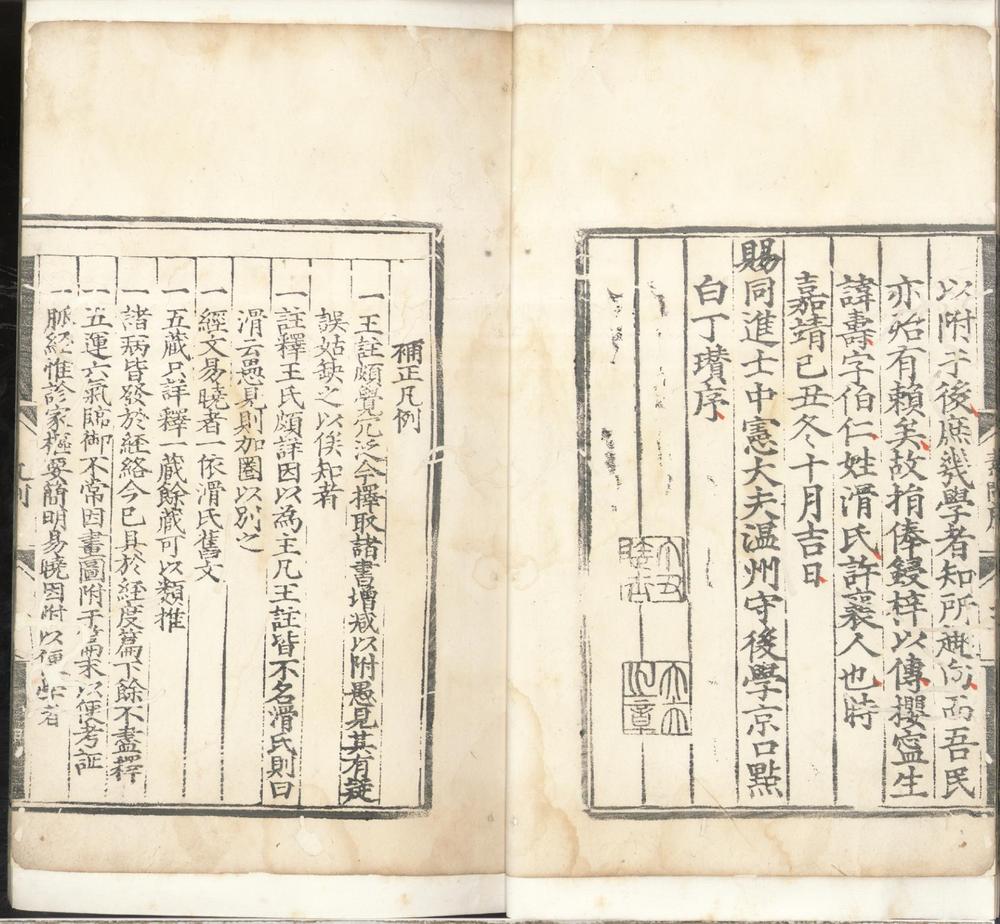 以附于後庶幾學者知所趨向而吾民
亦殆有賴矣故捐俸鋟梓以傳攖寧生
諱壽字伯仁姓滑氏許襄人也時
嘉靖己丑冬十月吉日
賜同進士中憲大夫温州守後學京口點
白丁瓚序
補正凡例
一王註頗覺冗泛今擇取諸書增减以附愚見其有疑
誤姑缺之以俟知者
一註釋王氏頗詳因以為主凡王註皆不名滑氏則曰
滑云愚見則加圈以别之
一經文易曉者一依滑氏舊文
一五藏只詳釋一藏餘藏可以類推
一諸病皆發於経絡今已具於経度篇下餘不盡釋
一五運六氣歸御不常因畫圖附于篇末以便考証
一脈経惟診家樞要簡明易曉因附以便 者